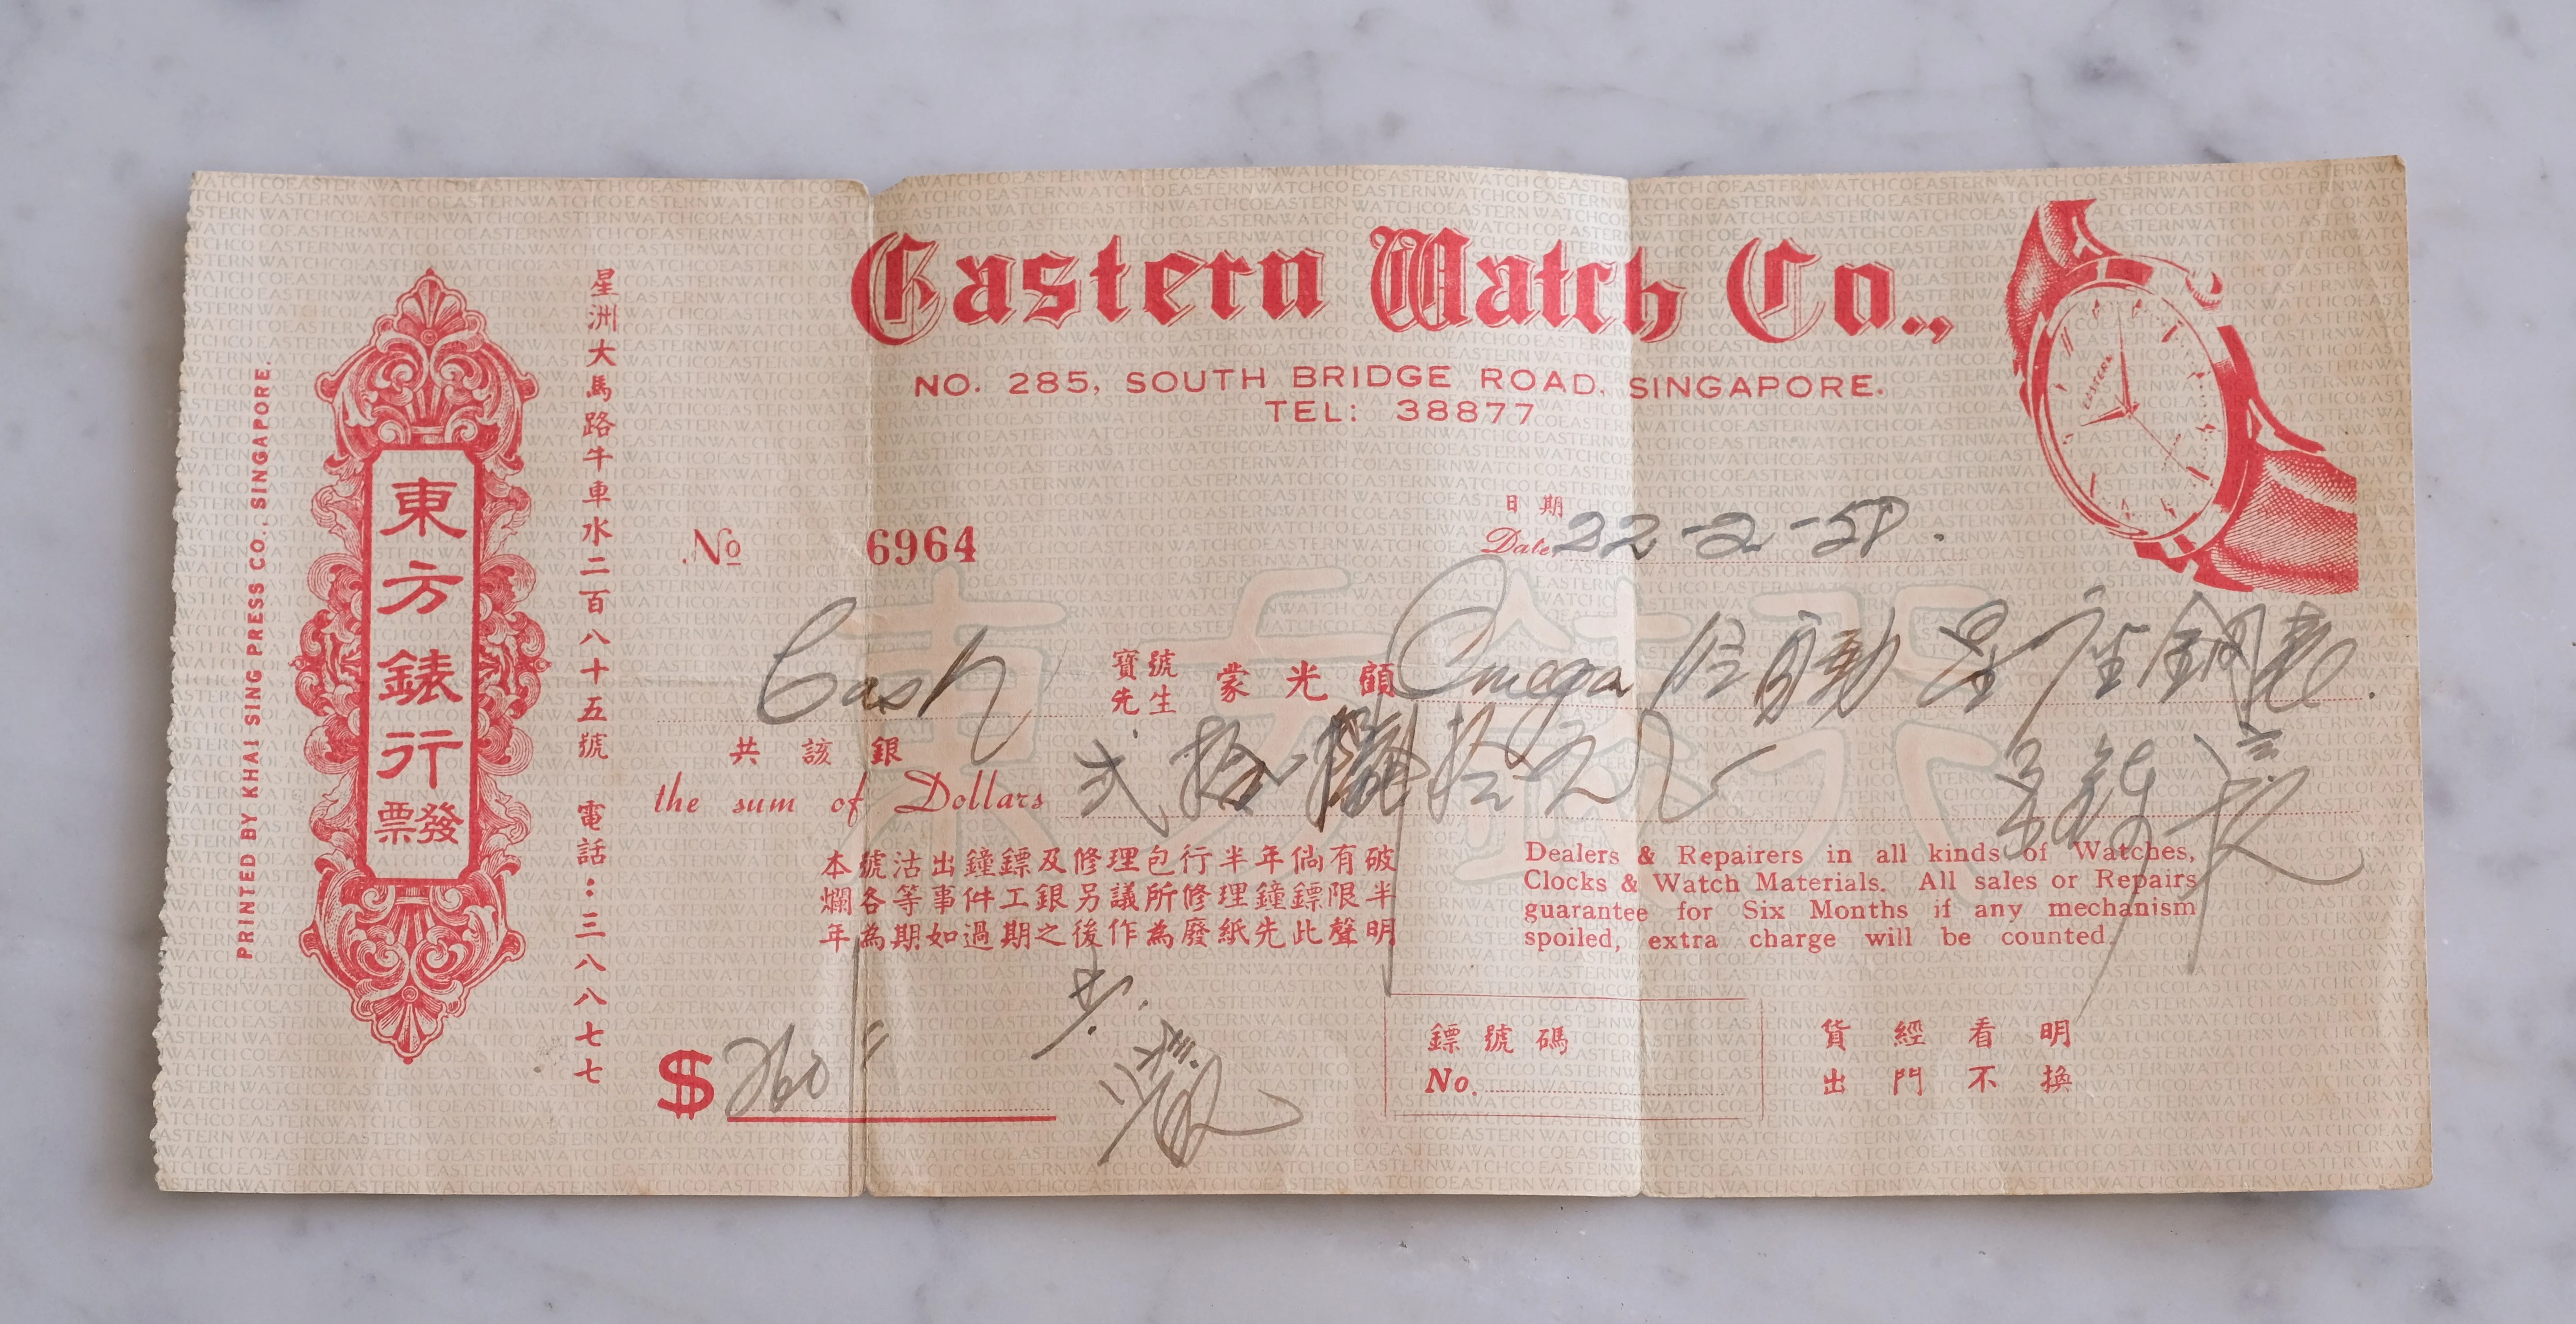 PRINTED BY KHAI SING PRESS CO., SINGAPORE.
東方錶行
發票
星洲大馬路牛車水二百八十五號 電話：三八八七七
Eastern Watch Co.,
NO. 285, SOUTH BRIDGE ROAD, SINGAPORE.
TEL: 38877
No 6964
日期
Date 22-2-58.
Cash 寶號 先生 蒙光顧 Omega 自動 鋼
共該銀
the sum of Dollars 弍
本號沽出鐘鏢及修理包行半年倘有破
爛各等事件工銀另議所修理鐘鏢限半
年為期如過期之後作為廢紙先此聲明
Dealers & Repairers in all kinds of Watches,
Clocks & Watch Materials. All sales or Repairs
guarantee for Six Months if any mechanism
spoiled, extra charge will be counted.
$ 260
鏢號碼
No.
貨經看明
出門不換
東方錶行